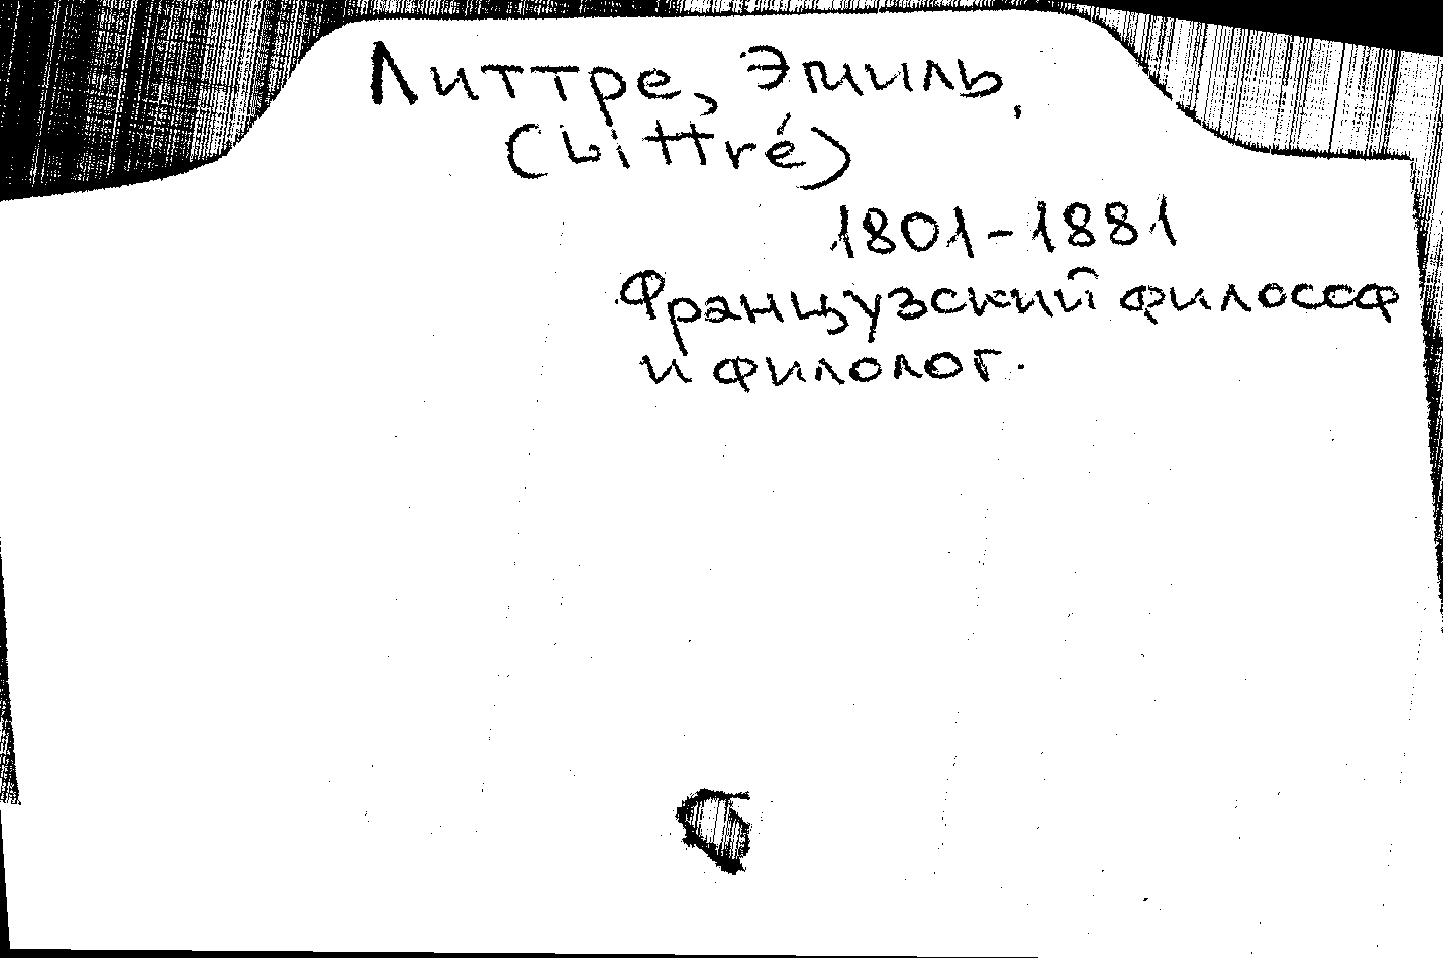 Литтре, Эмиль,
(Littré)
1801-1881
Французский философ
и филолог.